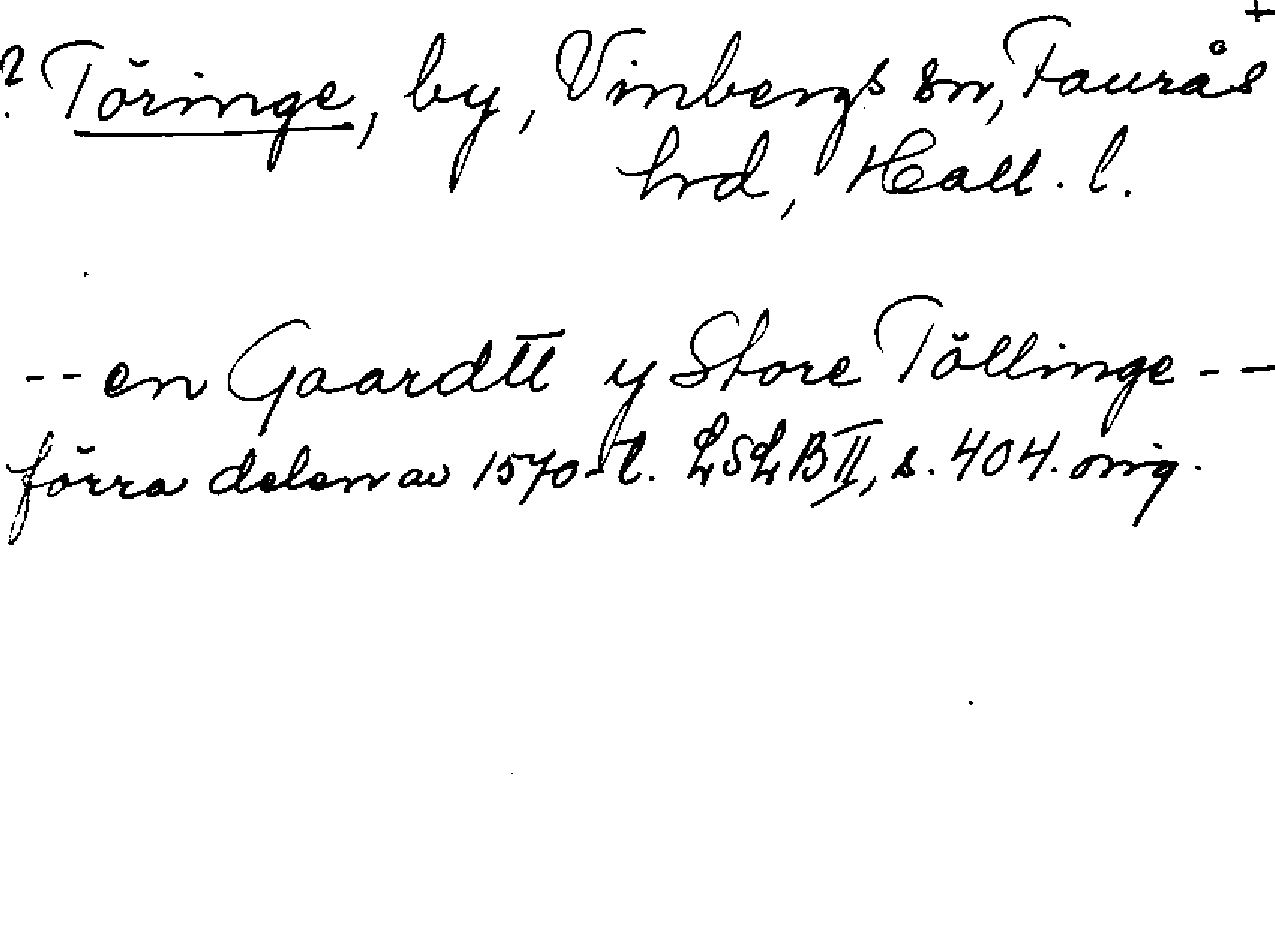 +
? Töringe, by, Vinbergs sn, Faurås
hrd, Hall. l.
-- en Gaardtt y Store Töllinge --
förra delen av 1570-t. LSLB II, s. 404. orig.